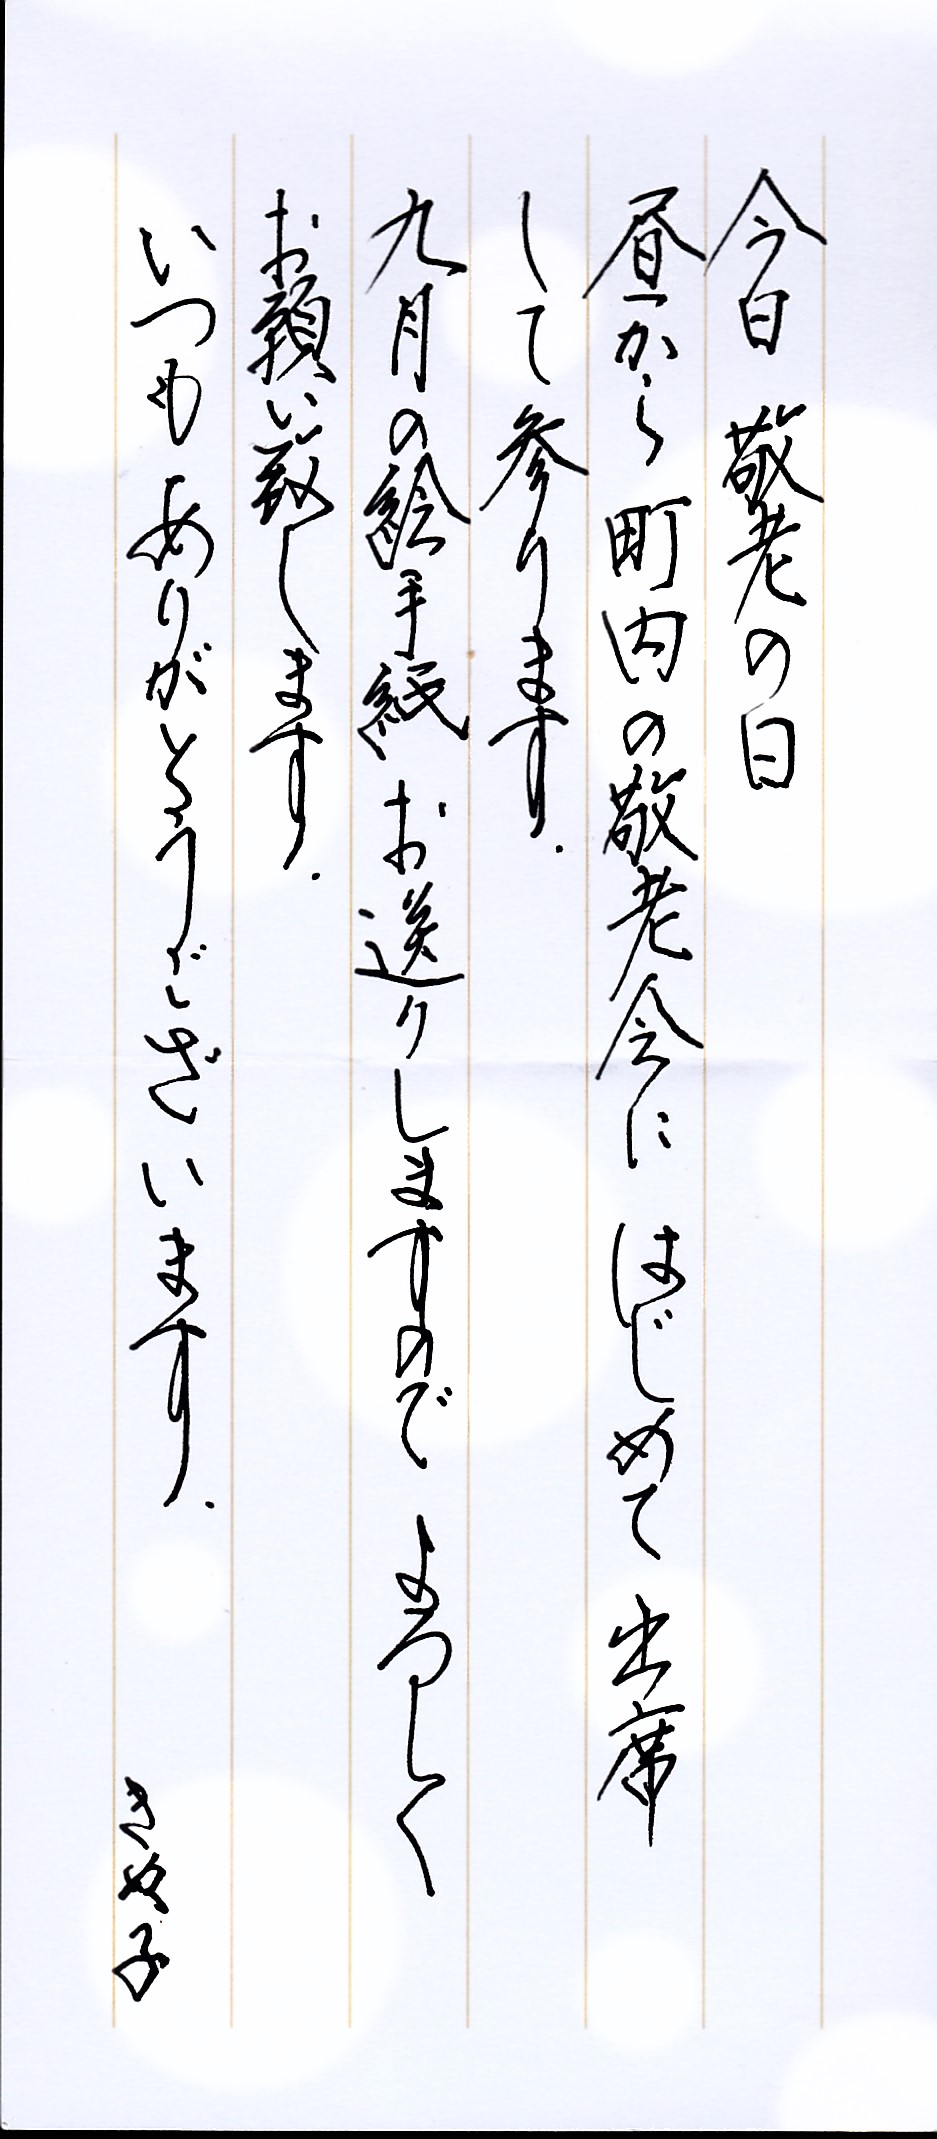 今日 敬老の日
昼から 町内の敬老会に はじめて 出席
して 参ります.
九月の絵手紙 お送りしますので よろしく
お願い致します.
いつも ありがとうございます.
きぬ子